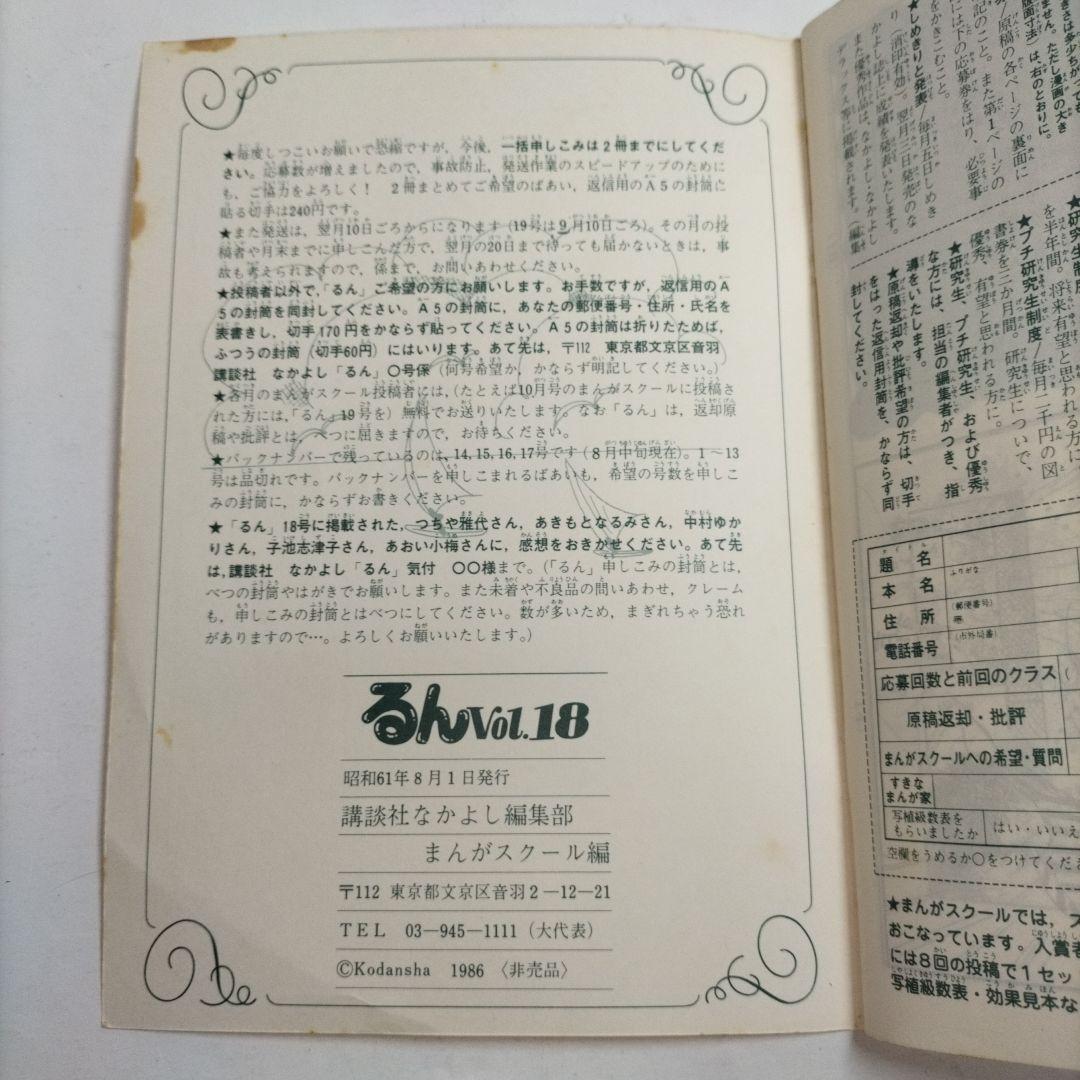 ★毎度しつこいお願いで恐縮ですが、今後、一括申しこみは2冊までにしてくだ
さい。応募数が増えましたので、事故防止、発送作業のスピードアップのために
も、ご協力をよろしく！ 2冊まとめてご希望のばあい、返信用のA5の封筒に
貼る切手は240円です。
★また発送は、翌月10日ごろからになります(19号は9月10日ごろ)。その月の投
稿者や月末までに申しこんだ方で、翌月の20日まで待っても届かないときは、事
故も考えられますので、係まで、お問いあわせください。
★投稿者以外で、「るん」ご希望の方にお願いします。お手数ですが、返信用のA
5の封筒を同封してください。A5の封筒に、あなたの郵便番号・住所・氏名を
表書きし、切手170円をかならず貼ってください。A5の封筒は折りたためば、
ふつうの封筒(切手60円)にはいります。あて先は、〒112 東京都文京区音羽
講談社 なかよし「るん」○号係(何号希望か、かならず明記してください。)
★各月のまんがスクール投稿者には、(たとえば10月号のまんがスクールに投稿さ
れた方には、「るん」19号を)無料でお送りいたします。なお「るん」は、返却原
稿や批評とは、べつに届きますので、お待ちください。
★バックナンバーで残っているのは、14,15,16,17号です(8月中旬現在)。1〜13
号は品切れです。バックナンバーを申しこまれるばあいも、希望の号数を申しこ
みの封筒に、かならずお書きください。
★「るん」18号に掲載された、つちや雅代さん、あきもとなるみさん、中村ゆか
りさん、子池志津子さん、あおい小梅さんに、感想をおきかせください。あて先
は、講談社 なかよし「るん」気付 ○○様まで。(「るん」申しこみの封筒とは、
べつの封筒やはがきでお願いします。また未着や不良品の問いあわせ、クレーム
も、申しこみの封筒とはべつにしてください。数が多いため、まぎれちゃう恐れ
がありますので…。よろしくお願いいたします。)
るんVol.18
昭和61年8月1日発行
講談社なかよし編集部
まんがスクール編
〒112 東京都文京区音羽2—12—21
TEL 03—945—1111(大代表)
©Kodansha 1986 〈非売品〉
きさは多少ちがっても
ません。ただし漫画の大き
版面寸法)は、右のとおりに。
原稿の各ページの裏面に
記のこと。また第1ページの
には下の応募券をはり、必要事
をかきこむこと。
★しめきりと発表/毎月五日しめき
り(消印有効)。翌月三日発売のな
かよし誌上に成績を発表いたします。
また優秀作品は、なかよし・なかよし
デラックス等に掲載されます。(編集
★研究生制度
を半年間。将来有望と思われる方に
★プチ研究生制度/毎月二千円の図
書券を三か月間。研究生について、
優秀、有望と思われる方に。
★研究生、プチ研究生、および優秀
な方には、担当の編集者がつき、指
導をいたします。
★原稿返却や批評希望の方は、切手
をはった返信用封筒を、かならず同
封してください。
題名
タイトル
本名
ふりがな
住所
(郵便番号)
電話番号
(市外局番)
応募回数と前回のクラス (
原稿返却・批評
まんがスクールへの希望・質問
すきな
まんが家
写植級数表を
もらいましたか
はい・いいえ
空欄をうめるか○をつけてくだ
★まんがスクールでは、ス
おこなっています。入賞者
には8回の投稿で1セッ
写植級数表・効果見本な